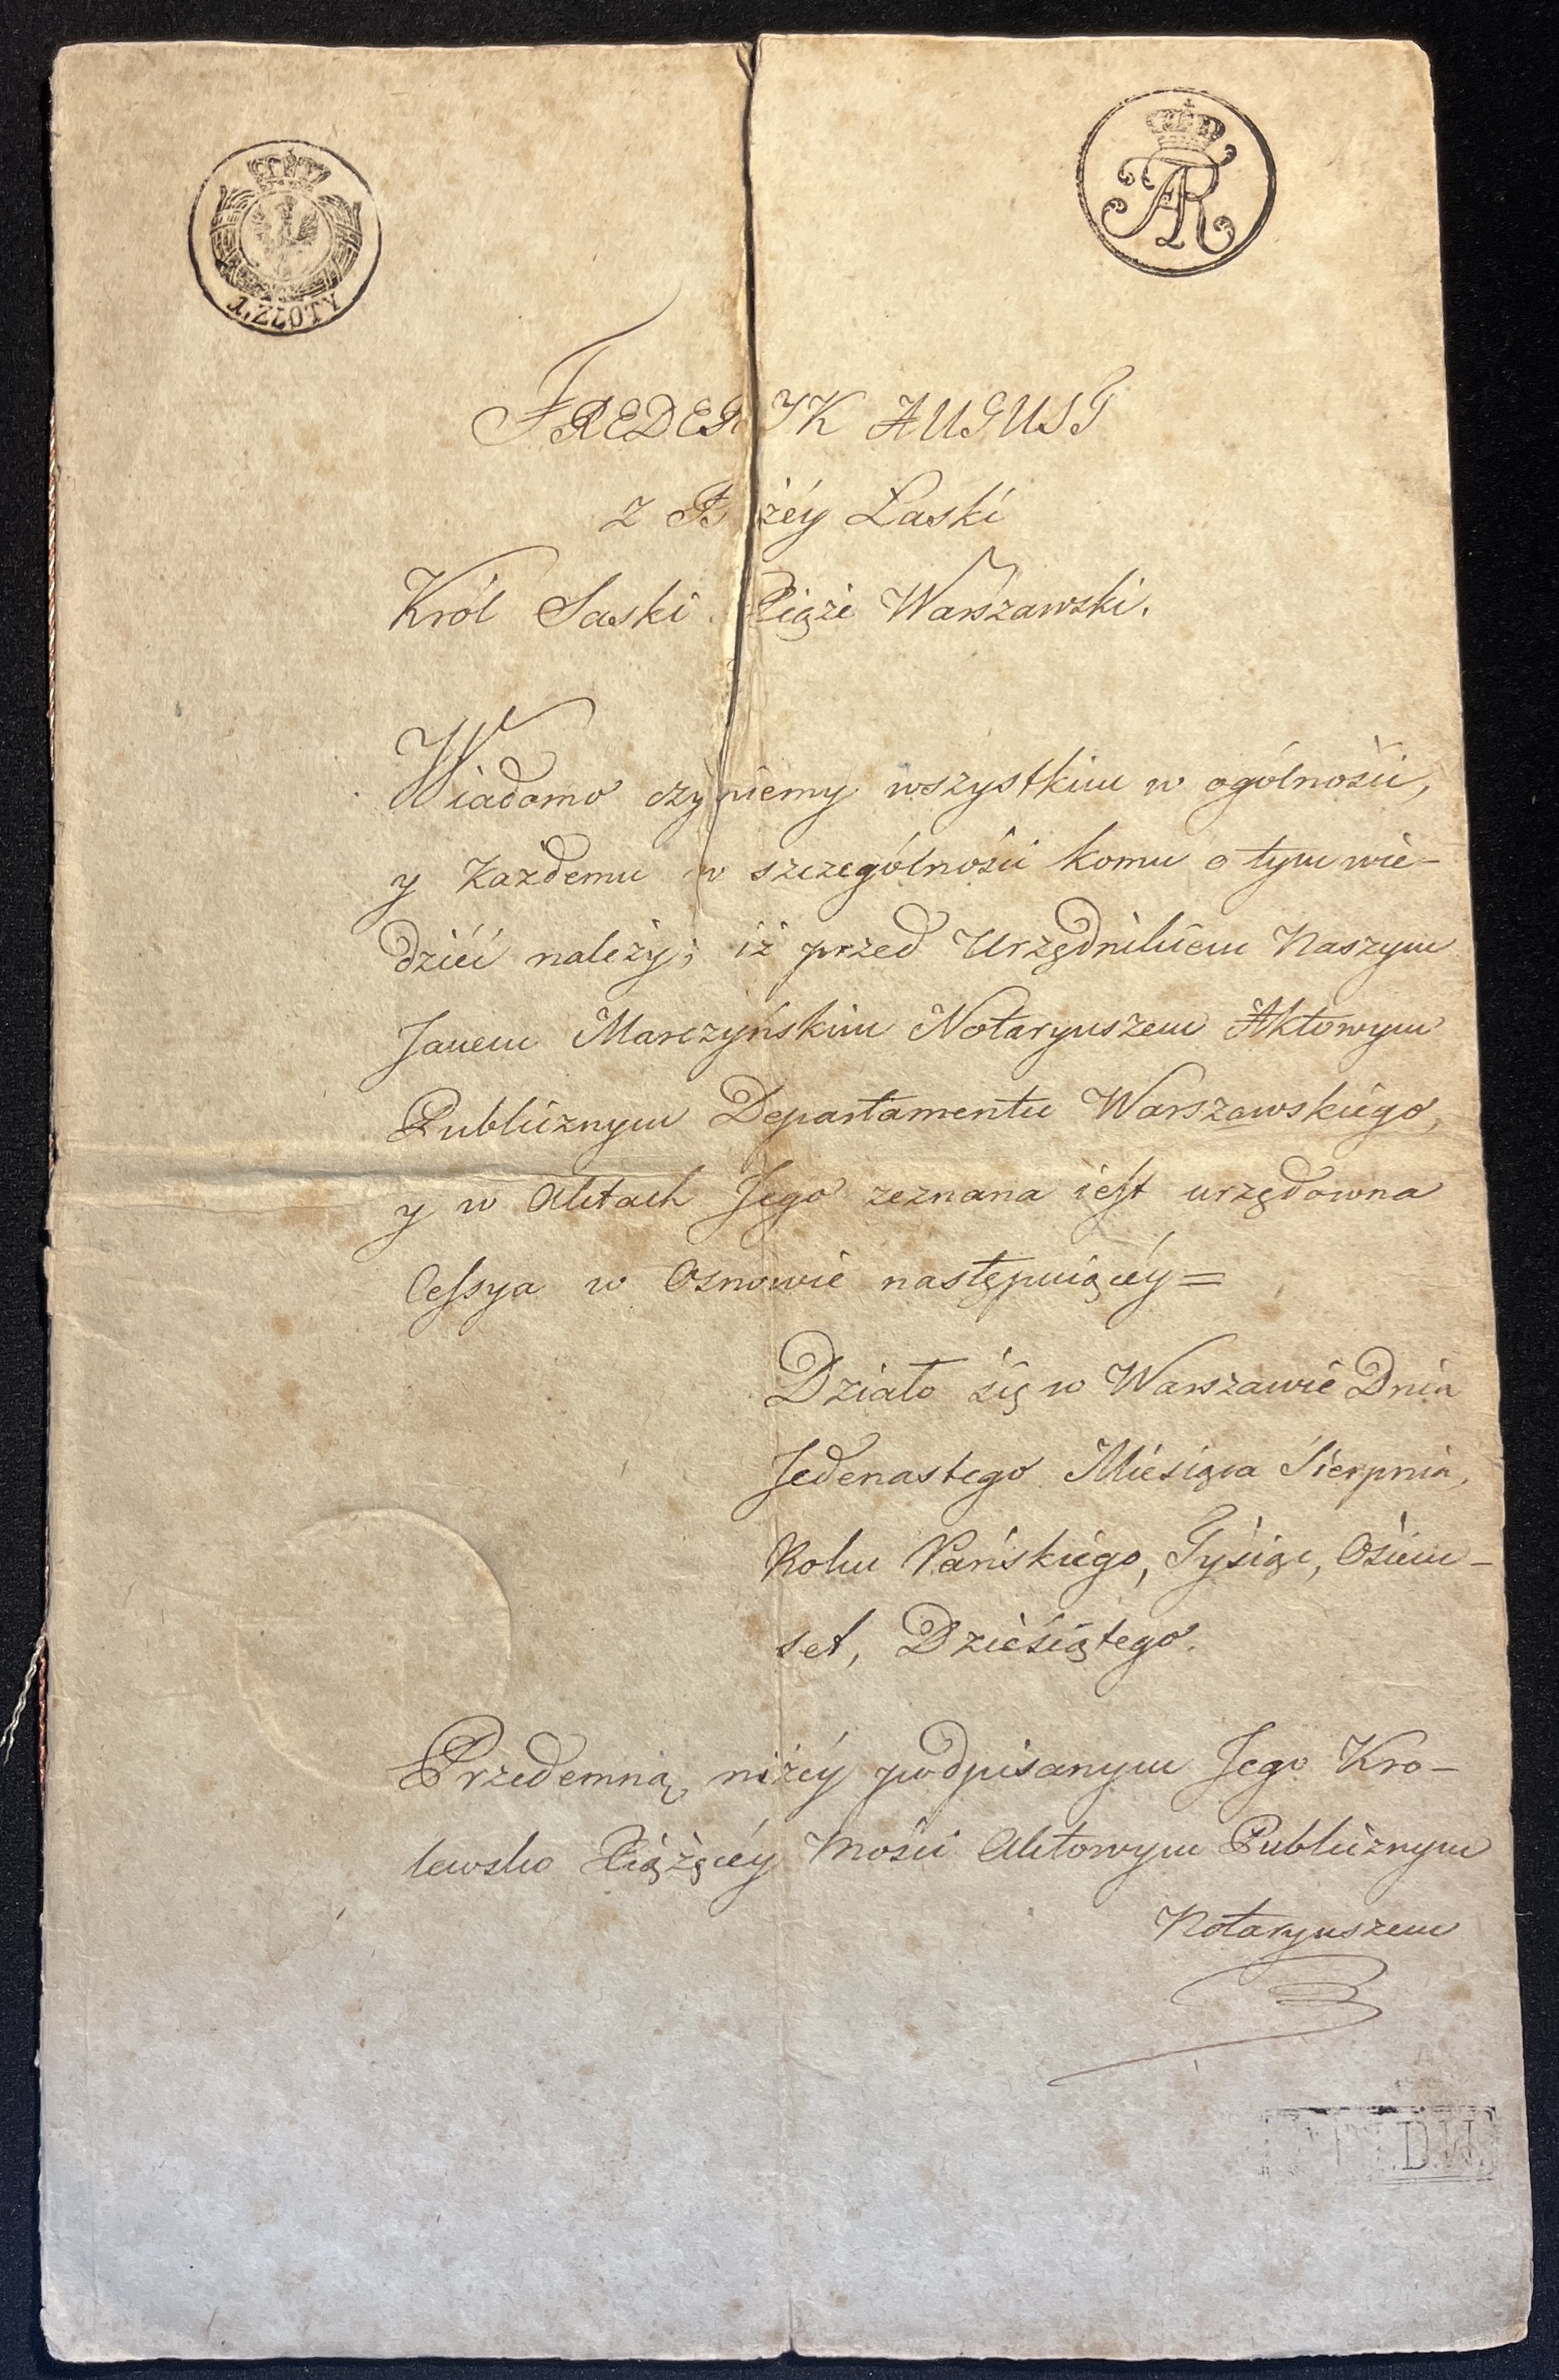 1. ZŁOTY
FAR
FREDERYK AUGUST
z Bożéy Łaski
Król Saski Xiąże Warszawski.
Wiadomo czyniemy wszystkim w ogólności,
y każdemu w szczególności komu o tym wie-
dzieć należy; iż przed Urzędnikiem Naszym
Janem Marczyńskim Notaryuszem Aktowym
Publicznym Departamentu Warszawskiego,
y w Aktach Jego zeznana iest urzędowna
Cessya w Osnowie następuiącéy =
Działo się w Warszawie Dnia
Jedenastego Miesiąca Sierpnia,
Roku Pańskiego, Tysiąc, Ośim-
set, Dziesiątego.
Przedemną niżéy podpisanym Jego Kro-
lewsko Xiążęcéy Mości Aktowym Publicznym
Notaryuszem
D.W.